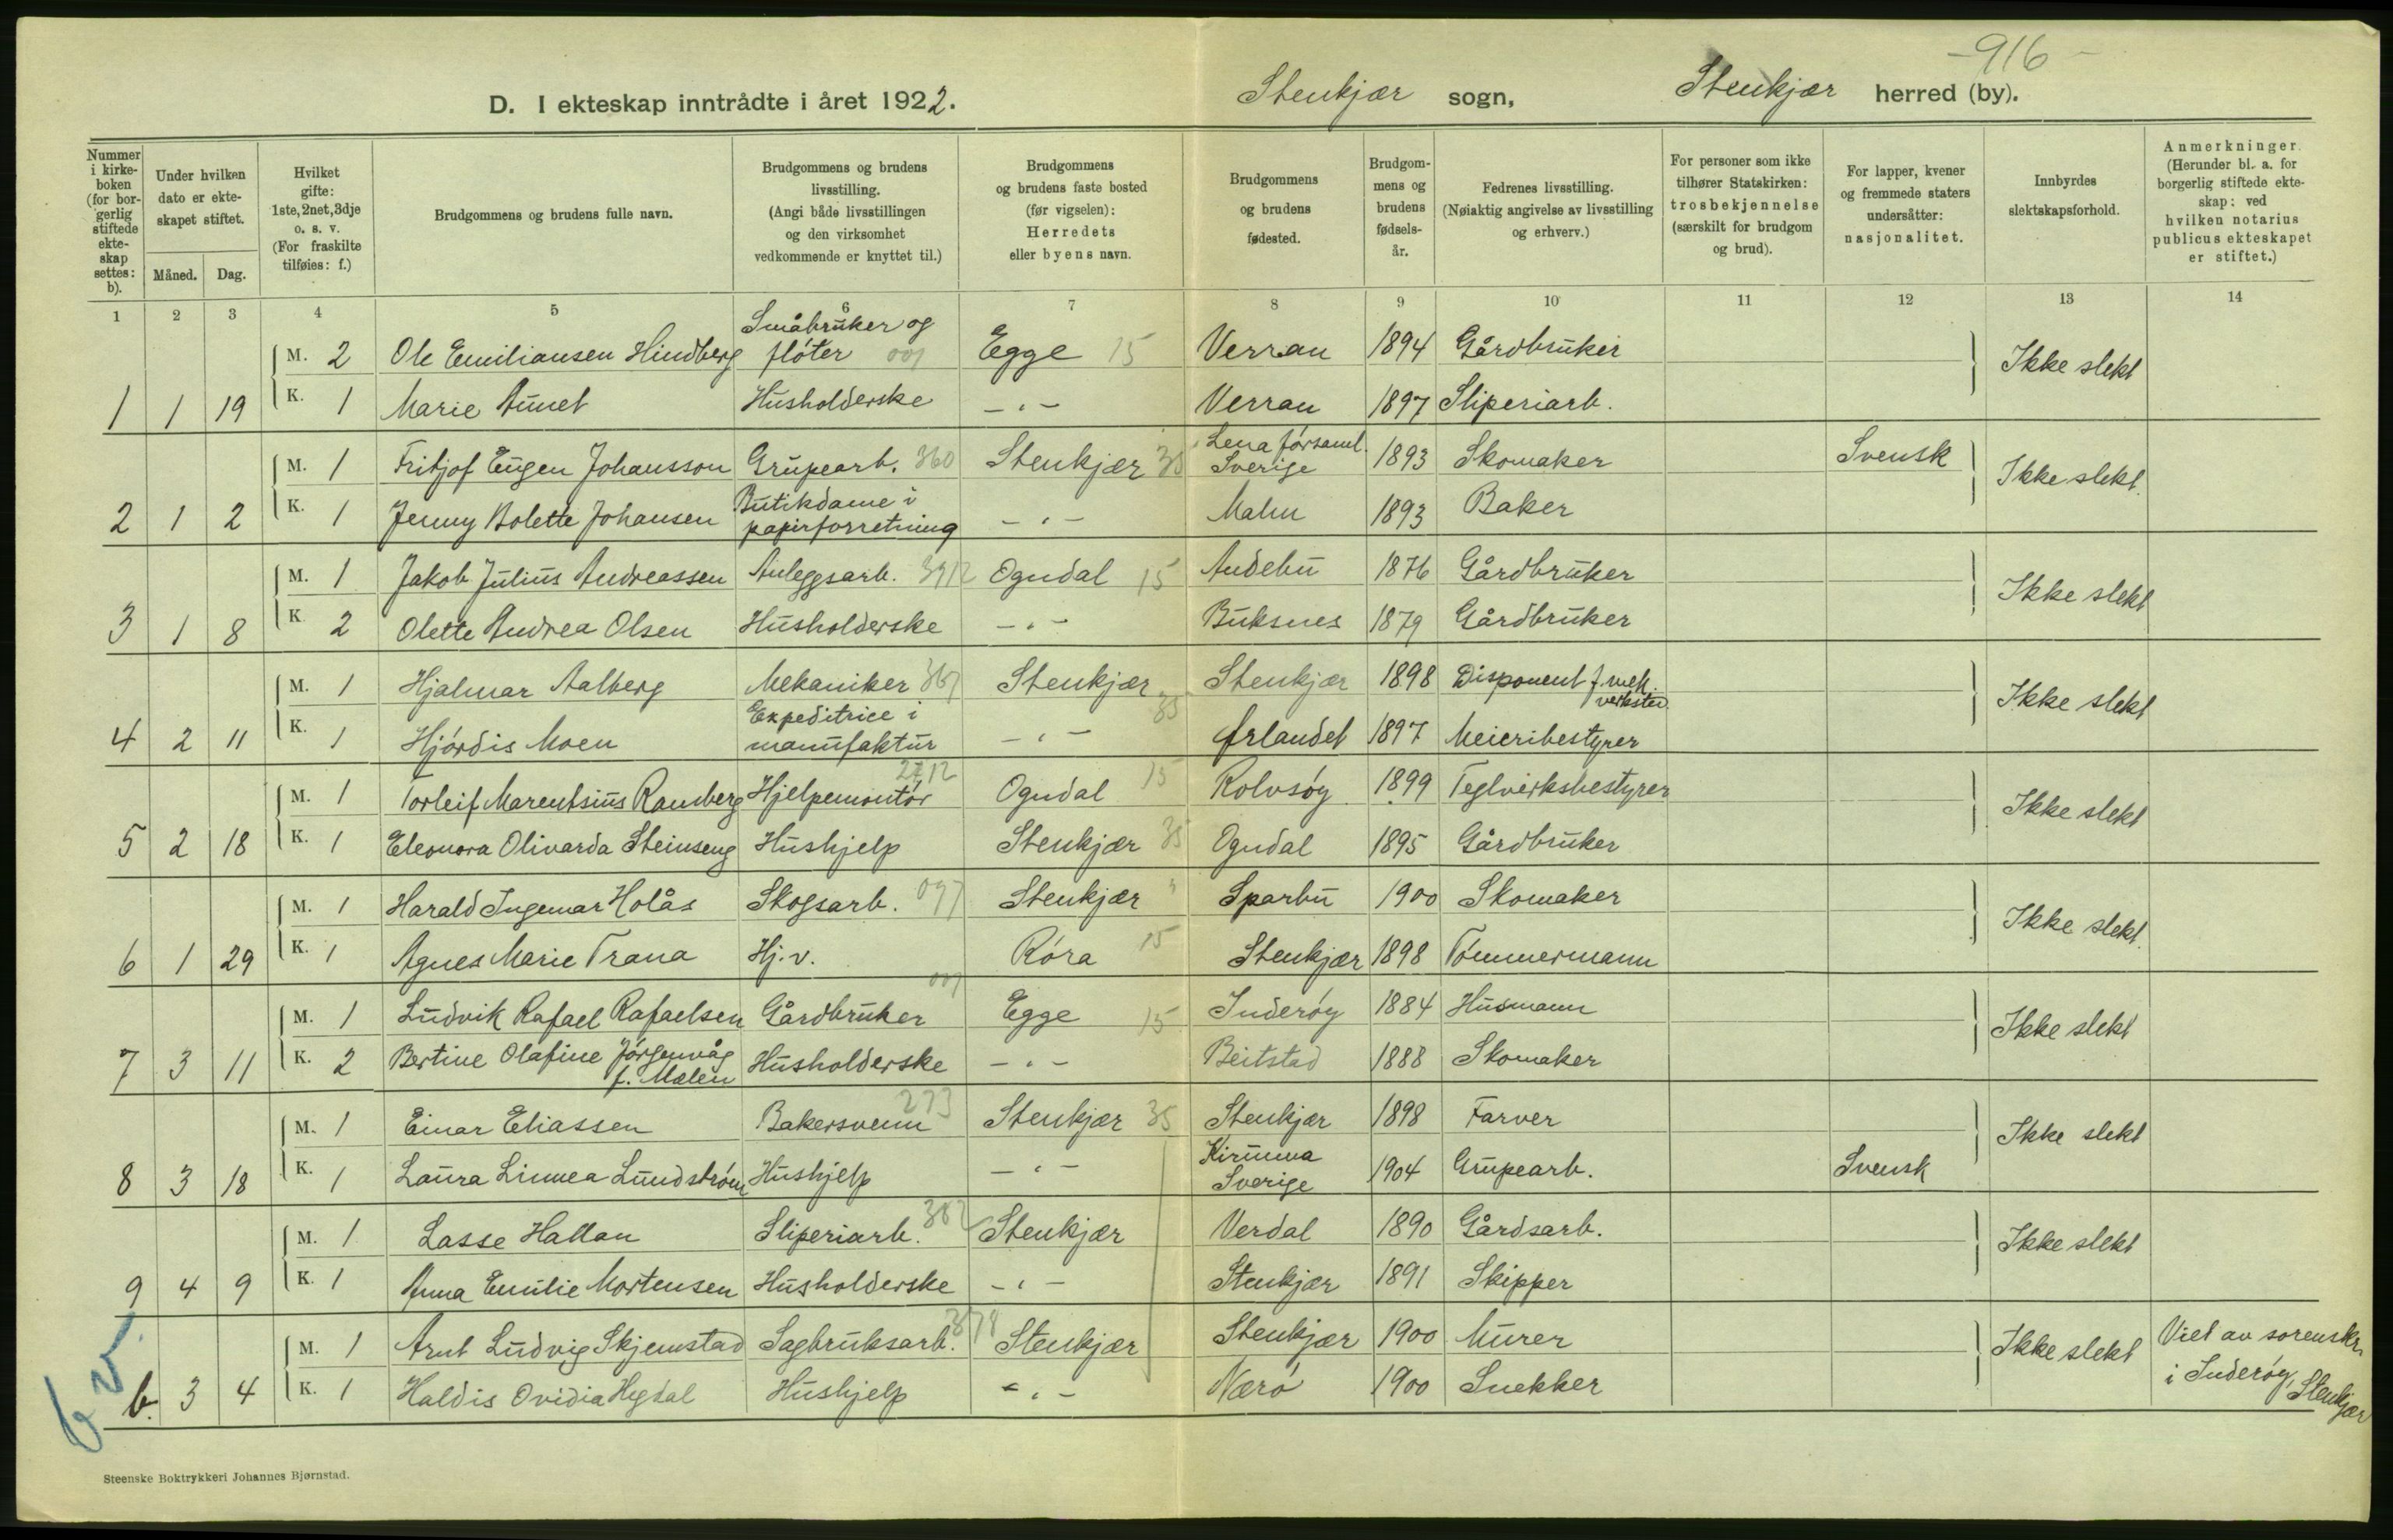 -916-
D. I ekteskap inntrådte i året 1922. Stenkjær sogn, Stenkjær herred (by).
Nummer i kirkeboken (for borgerlig stiftede ekteskap settes: b).
Under hvilken dato er ekteskapet stiftet.
Måned. Dag.
Hvilket gifte: 1ste, 2net, 3dje o. s. v. (For fraskilte tilføies: f.)
Brudgommens og brudens fulle navn.
Brudgommens og brudens livsstilling. (Angi både livsstillingen og den virksomhet vedkommende er knyttet til.)
Brudgommens og brudens faste bosted (før vigselen): Herredets eller byens navn.
Brudgommens og brudens fødested.
Brudgommens og brudens fødselsår.
Fedrenes livsstilling. (Nøiaktig angivelse av livsstilling og erhverv.)
For personer som ikke tilhører Statskirken: trosbekjennelse (særskilt for brudgom og brud).
For lapper, kvener og fremmede staters undersåtter: nasjonalitet.
Innbyrdes slektskapsforhold.
Anmerkninger. (Herunder bl. a. for borgerlig stiftede ekteskap: ved hvilken notarius publicus ekteskapet er stiftet.)
1 2 3 4 5 6 7 8 9 10 11 12 13 14
M. 2 Ole Emiliansen Hindberg Småbruker og fløter 001 Egge 15 Verran 1894 Gårdbruker Ikke slekt
1 1 19 K. 1 Marie Aunet Husholderske -"- Verran 1897 Sliperiarb.
M. 1 Fritjof Eugen Johansson Grupearb. 360 Stenkjær 35 Lena forsaml. Sverige 1893 Skomaker Svensk Ikke slekt.
2 1 2 K. 1 Jenny Bolette Johansen Butikdame i papirforretning -"- Malm 1893 Baker
M. 1 Jakob Julius Andreassen Anleggsarb. 3912 Ogndal 15 Andebu 1876 Gårdbruker Ikke slekt
3 1 8 K. 2 Olette Andrea Olsen Husholderske -"- Buksnes 1879 Gårdbruker
M. 1 Hjalmar Aalberg Mekaniker 367 Stenkjær 35 Stenkjær 1898 Disponent f. mek. verksted Ikke slekt
4 2 11 K. 1 Hjørdis Moen Expeditrice i manufaktur -"- Ørlandet 1897 Meieribestyrer
M. 1 Torleif Marentsius Ramberg Hjelpemontør 2712 Ogndal 15 Rolvsøy 1899 Teglverksbestyrer Ikke slekt
5 2 18 K. 1 Eleonora Olivarda Steinseng Hushjelp Stenkjær 35 Ogndal 1895 Gårdbruker
M. 1 Harald Ingemar Holås Skogsarb. 097 Stenkjær Sparbu 1900 Skomaker Ikke slekt.
6 1 29 K. 1 Agnes Marie Trana Hj.v. Røra 15 Stenkjær 1898 Tømmermann
M. 1 Ludvik Rafael Rafaelsen Gårdbruker 001 Egge 15 Inderøy 1884 Husmann Ikke slekt
7 3 11 K. 2 Bertine Olafine Jørgenvåg f. Malen Husholderske -"- Beitstad 1888 Skomaker
M. 1 Einar Eliassen Bakersvenn 273 Stenkjær 35 Stenkjær 1898 Farver Ikke slekt
8 3 18 K. 1 Laura Linnea Lundstrøm Hushjelp -"- Kiruna Sverige 1904 Grupearb. Svensk
M. 1 Lasse Hallan Sliperiarb. 382 Stenkjær Verdal 1890 Gårdsarb. Ikke slekt
9 4 9 K. 1 Anna Emilie Mortensen Husholderske -"- Stenkjær 1891 Skipper
M. 1 Arnt Ludvig Skjemstad Sagbruksarb. Stenkjær Stenkjær 1900 Murer Ikke slekt Viet av sorenskr. i Inderøy, Stenkjær
b. 3 4 K. 1 Haldis Ovidia Hegdal Hushjelp -"- Nærø 1900 Snekker
Steenske Boktrykkeri Johannes Bjørnstad.